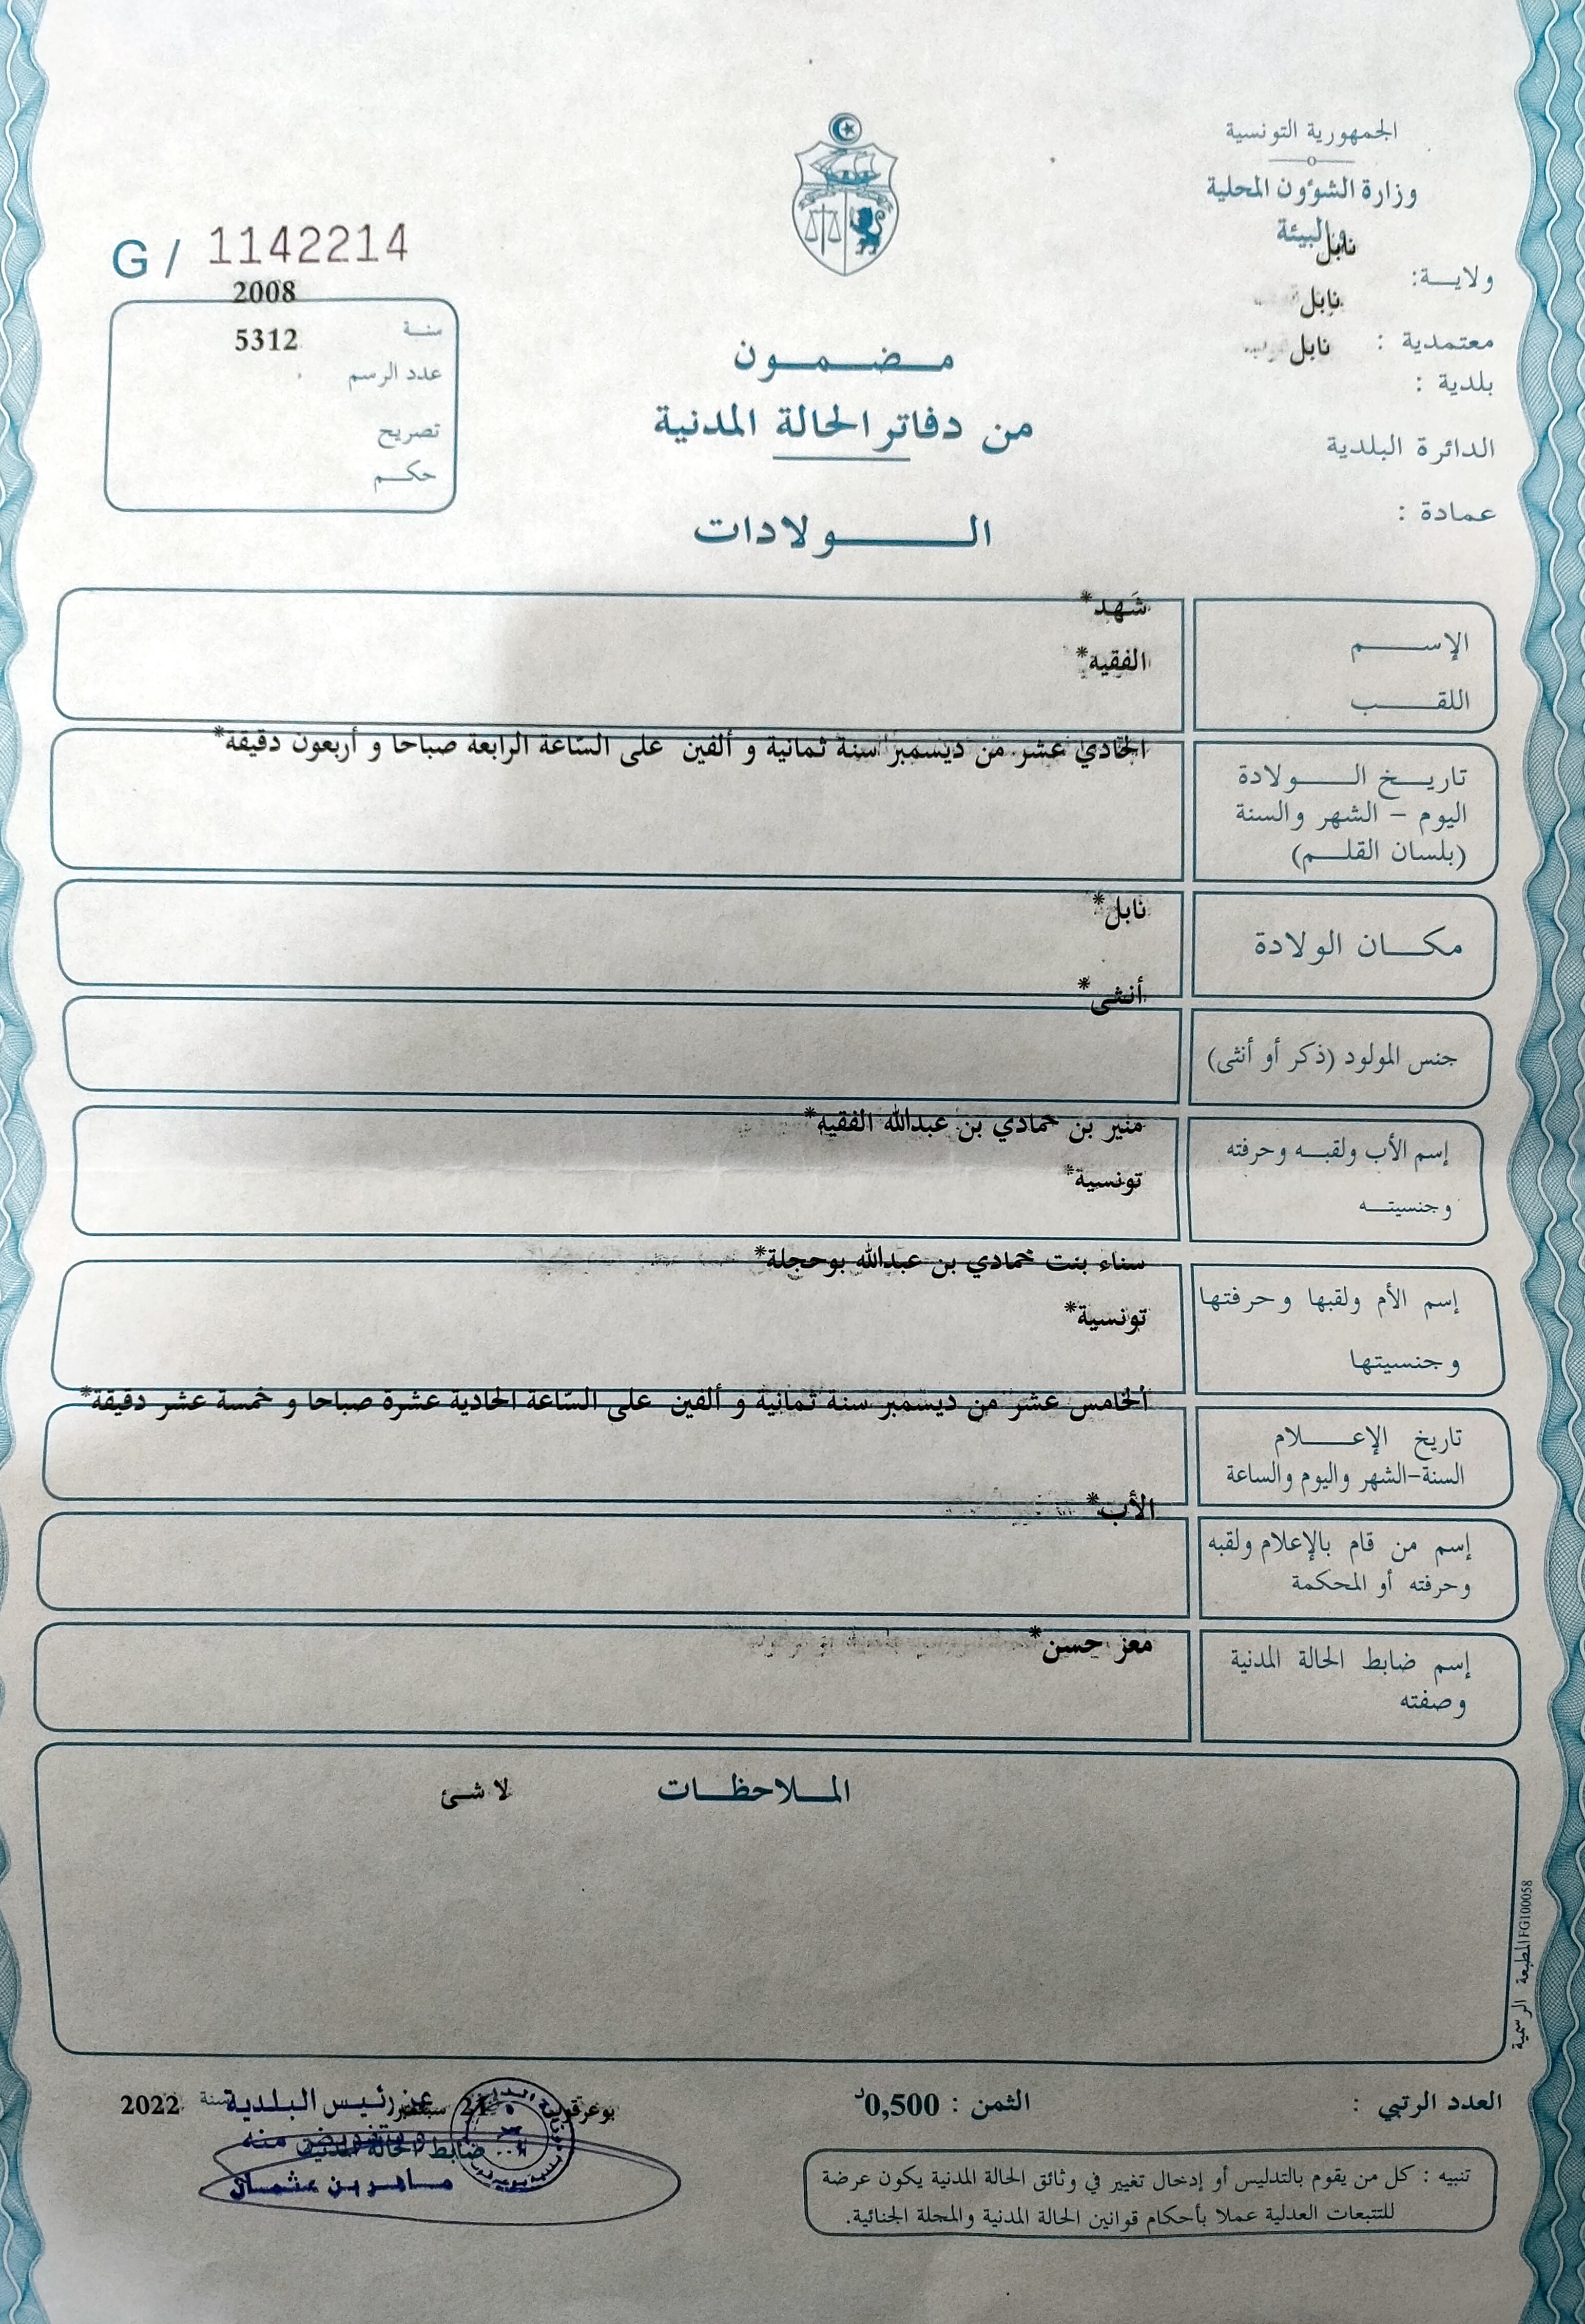 الجمهورية التونسية
وزارة الشؤون المحلية
والبيئة
ولاية: نابل
معتمدية : نابل
بلدية : نابل
الدائرة البلدية
عمادة :
G / 1142214
سنة 2008
عدد الرسم 5312
تصريح
حكم
مضمون
من دفاتر الحالة المدنية
الولادات
الإسم شَهد*
اللقب الفقيه*
تاريخ الولادة
اليوم – الشهر والسنة
(بلسان القلم)
الحادي عشر من ديسمبر سنة ثمانية و ألفين على السّاعة الرابعة صباحا و أربعون دقيقة*
مكان الولادة نابل*
جنس المولود (ذكر أو أنثى) أنثى*
إسم الأب ولقبه وحرفته
وجنسيته
منير بن حمادي بن عبدالله الفقيه*
تونسية*
إسم الأم ولقبها وحرفتها
وجنسيتها
سناء بنت حمادي بن عبدالله بوحجلة*
تونسية*
تاريخ الإعلام
السنة-الشهر واليوم والساعة
الخامس عشر من ديسمبر سنة ثمانية و ألفين على السّاعة الحادية عشرة صباحا و خمسة عشر دقيقة*
إسم من قام بالإعلام ولقبه
وحرفته أو المحكمة
الأب*
إسم ضابط الحالة المدنية
وصفته
معز حسن*
الملاحظات لا شئ
المطبعة الرسمية FG100058
العدد الرتبي :
الثمن : 0,500د
بوعرقوب 21 سبتمبر سنة 2022
عن رئيس البلدية
وبتفويض منه
ضابط الحالة المدنية
ماهر بن عثمان
تنبيه : كل من يقوم بالتدليس أو إدخال تغيير في وثائق الحالة المدنية يكون عرضة
للتتبعات العدلية عملا بأحكام قوانين الحالة المدنية والمجلة الجنائية.